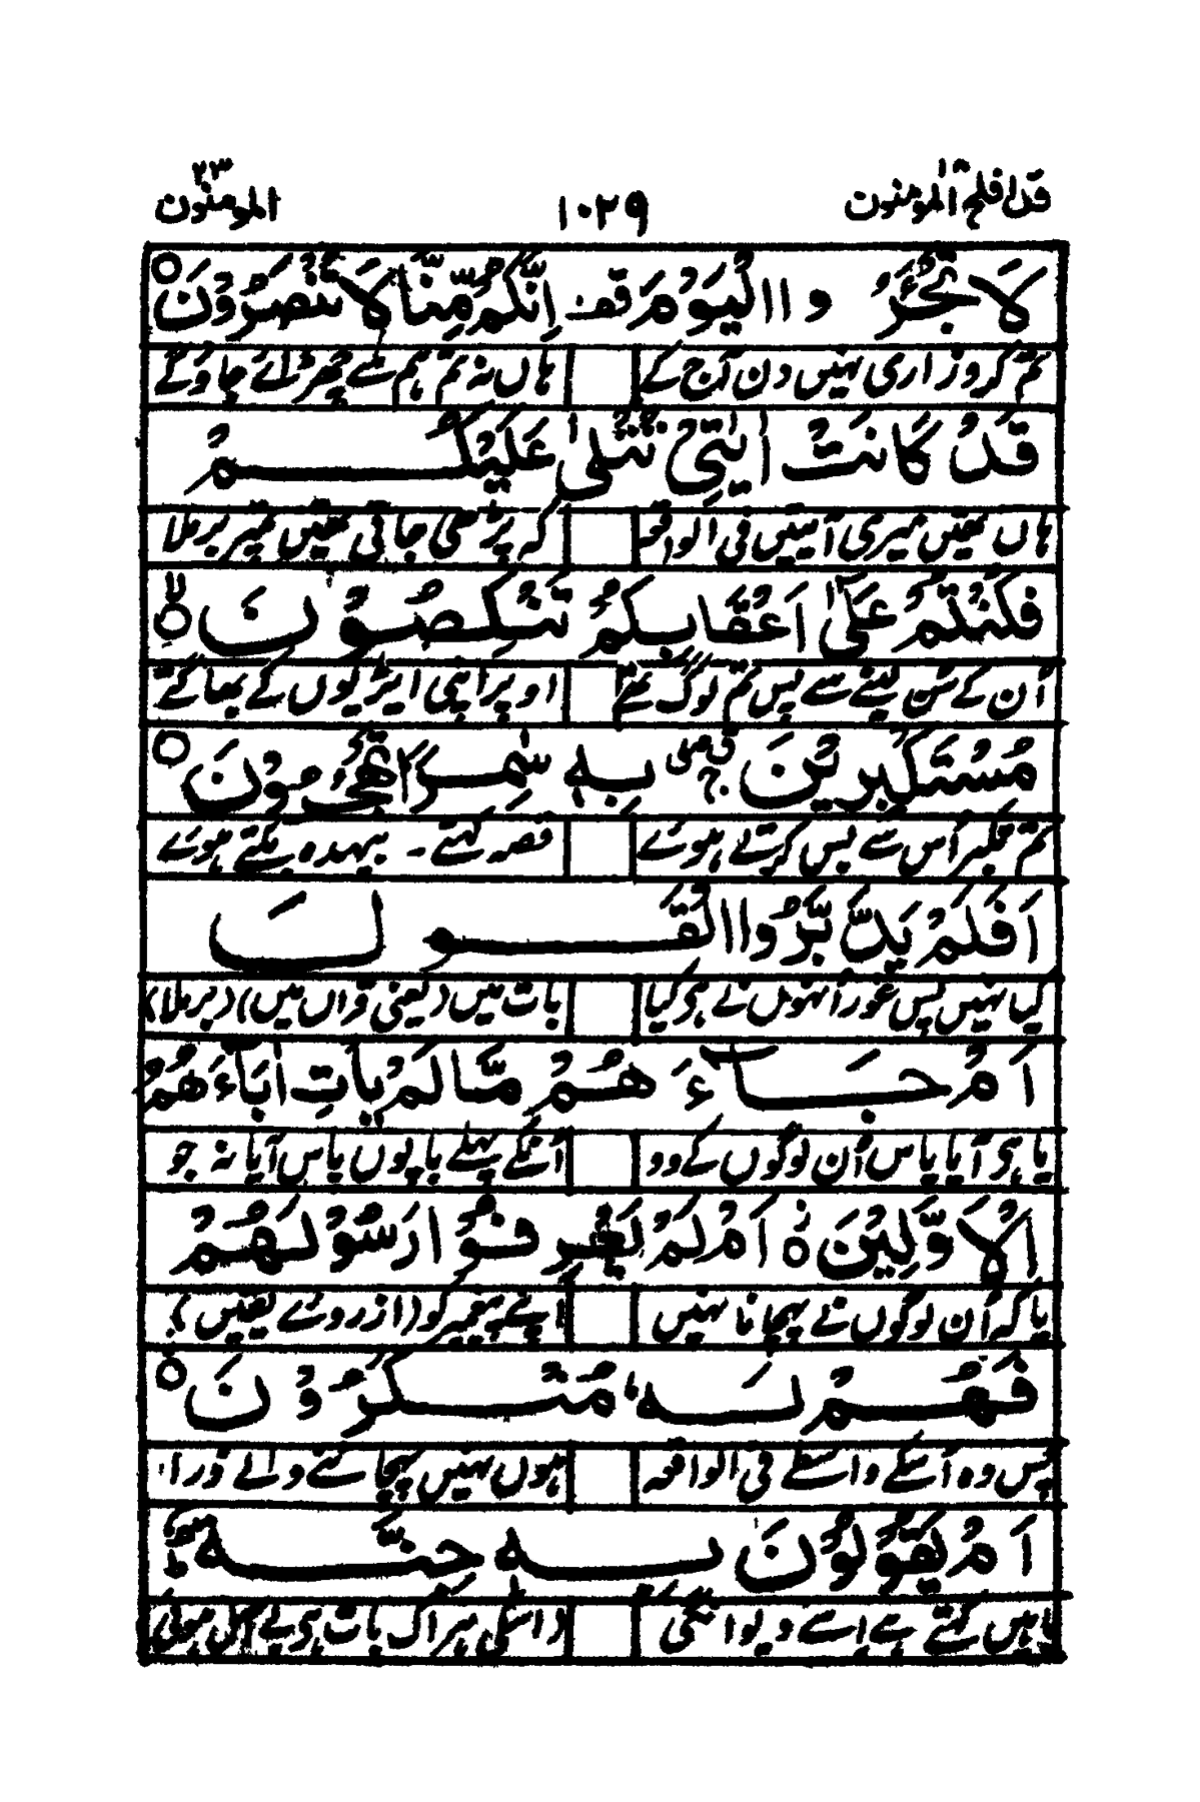 قد افلح ۱۸ المؤمنون ۱۰۲۹ المؤمنون ۲۳
لَا تَجْـَٔرُوا الْيَوْمَ قف اِنَّكُمْ مِّنَّا لَا تُنْصَرُوْنَ ○
تم کروزاری نہیں دن آج کے ہاں نہ تم ہم سے چھڑائے جاوگے
قَدْ كَانَتْ اٰيٰتِيْ تُتْلٰى عَلَيْكُمْ
ہاں تھیں میری آیتیں فی الواقع کہ پڑھی جاتی تھیں تمپر برملا
فَكُنْتُمْ عَلٰٓى اَعْقَابِكُمْ تَنْكِصُوْنَ ○ لا
اُن کے سُن لینے سے پس تم لوگ تھے اوپر اپنی ایڑیوں کے بھاگتے
مُسْتَكْبِرِيْنَ بِهٖ سٰمِرًا تَهْجُرُوْنَ ○
تم متکبر اُس سے پس کرتے ہوئے قصہ کہتے ۔ بیہودہ بکتے ہوئے
اَفَلَمْ يَدَّبَّرُوا الْقَوْلَ
کیا نہیں پس غور انہوں نے ہی کیا بات میں (یعنی قرآں میں) (برملا)
اَمْ جَآءَهُمْ مَّا لَمْ يَاْتِ اٰبَآءَهُمُ
یا ہی آیا پاس اُن لوگوں کے وو اُنکے پہلے باپوں پاس آیا نہ جو
الْاَوَّلِيْنَ ○ اَمْ لَمْ يَعْرِفُوْا رَسُوْلَهُمْ
یا کہ اُن لوگوں نے پہچانا نہیں اپنے پیغمبر کو (ازروئے یقیں)
فَهُمْ لَهٗ مُنْكِرُوْنَ ○
پس وہ اُسکے واسطے فی الواقعہ ہوں نہیں پہچاننے والے ذرا
اَمْ يَقُوْلُوْنَ بِهٖ جِنَّةٌ ط
یا ہیں کہتے ہے اسے دیوانگی (اسکی ہراک بات ہی بے اصل ہوئی